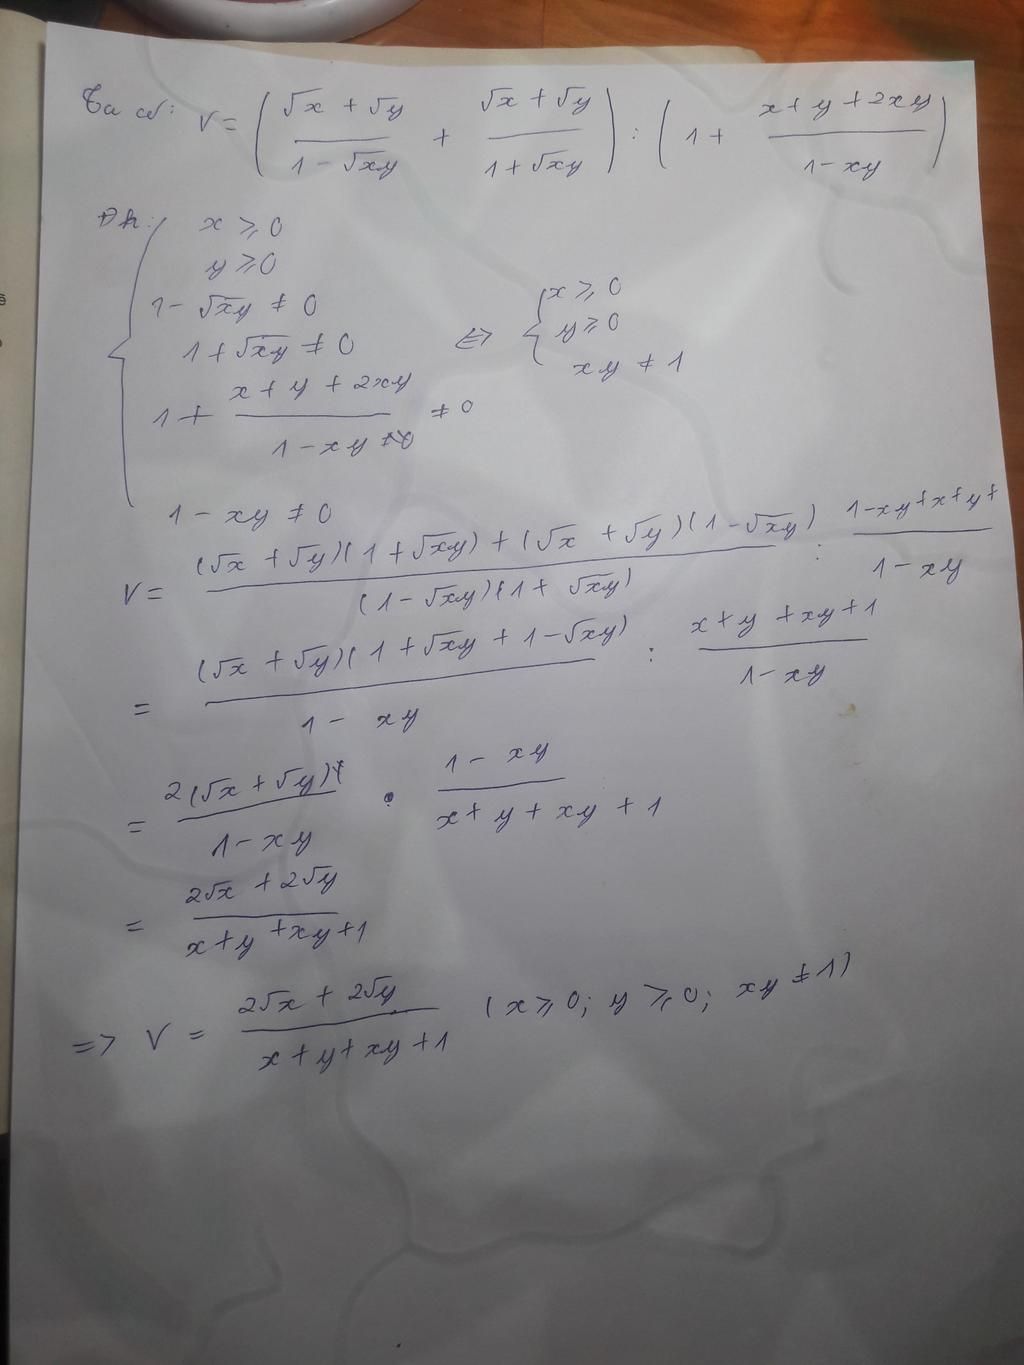 Ta có: V = ( (√x + √y)/(1 - √xy) + (√x + √y)/(1 + √xy) ) : ( 1 + (x + y + 2xy)/(1 - xy) )
Đk: { x ≥ 0
y ≥ 0
1 - √xy ≠ 0
1 + √xy ≠ 0 ⇔ { x ≥ 0
y ≥ 0
xy ≠ 1
1 + (x + y + 2xy)/(1 - xy) ≠ 0
1 - xy ≠ 0
V = ((√x + √y)(1 + √xy) + (√x + √y)(1 - √xy))/((1 - √xy)(1 + √xy)) : (1 - xy + x + y +)/(1 - xy)
= ((√x + √y)(1 + √xy + 1 - √xy))/(1 - xy) : (x + y + xy + 1)/(1 - xy)
= (2(√x + √y))/(1 - xy) . (1 - xy)/(x + y + xy + 1)
= (2√x + 2√y)/(x + y + xy + 1)
=> V = (2√x + 2√y)/(x + y + xy + 1) (x ≥ 0; y ≥ 0; xy ≠ 1)